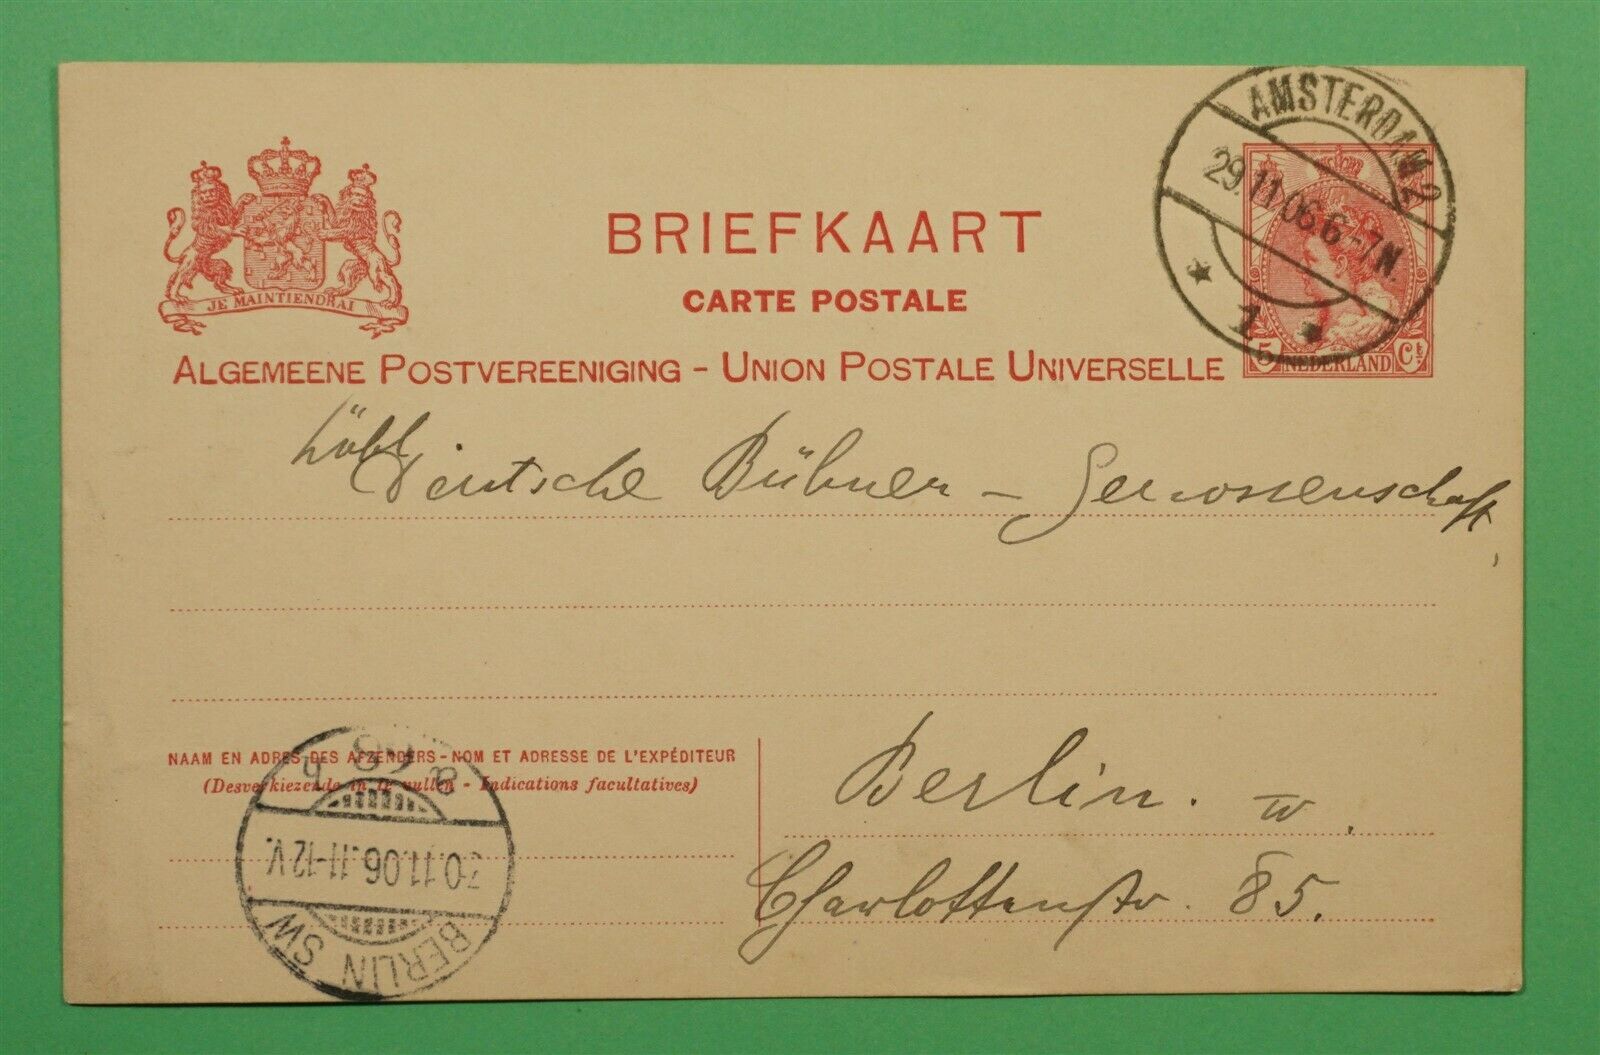 AMSTERDAM 2
29.11.06.6-7N.
1
JE MAINTIENDRAI
BRIEFKAART
CARTE POSTALE
ALGEMEENE POSTVEREENIGING - UNION POSTALE UNIVERSELLE
5 NEDERLAND Ct
Löbl Deutsche Bühnen - Genossenschaft,
NAAM EN ADRES DES AFZENDERS - NOM ET ADRESSE DE L'EXPÉDITEUR
(Desverkiezende in te vullen - Indications facultatives)
Berlin. W.
Charlottenstr. 85.
BERLIN SW
30.11.06.11-12V.
68